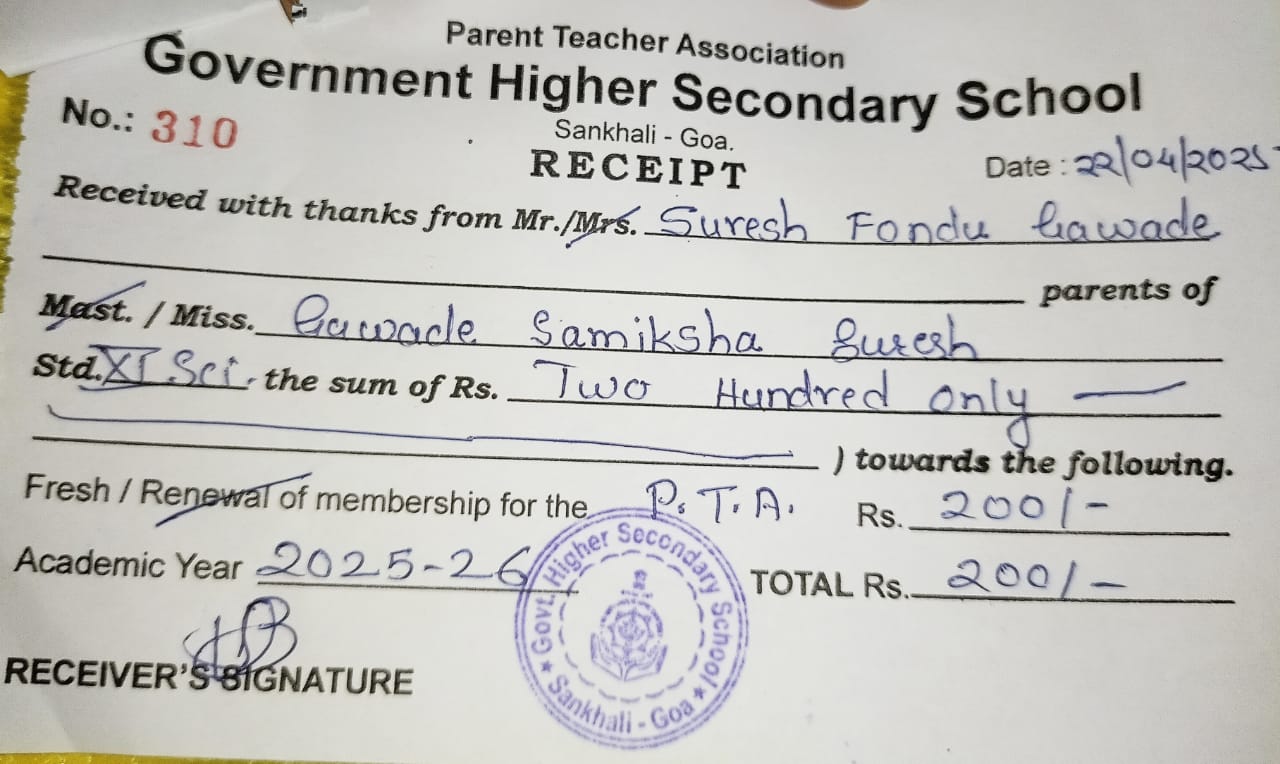 Parent Teacher Association
Government Higher Secondary School
No.: 310
Sankhali - Goa.
RECEIPT
Date : 22/04/2025
Received with thanks from Mr./Mrs. Suresh Fondu Gawade
parents of
Mast. / Miss. Gawade Samiksha Suresh
Std. XI Sci. the sum of Rs. Two Hundred only —
) towards the following.
Fresh / Renewal of membership for the P.T.A. Rs. 200/-
Academic Year 2025-26
TOTAL Rs. 200/-
Govt. Higher Secondary School ★ Sankhali - Goa ★
RECEIVER'S SIGNATURE